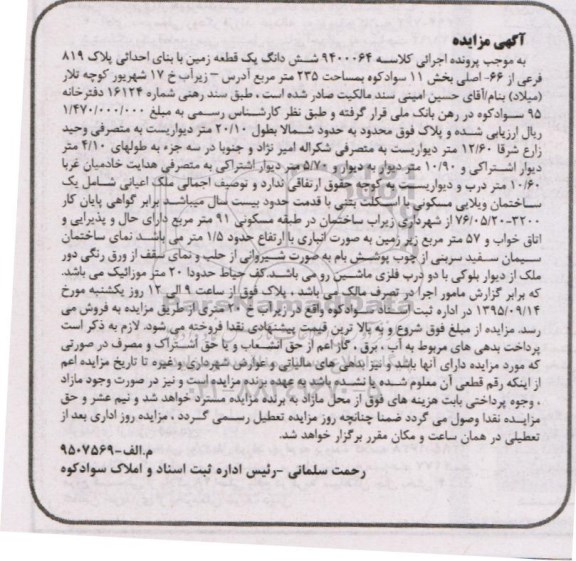 آگهی مزایده
به موجب پرونده اجرائی کلاسه ۹۴۰۰۰۶۴ شش دانگ یک قطعه زمین با بنای احداثی پلاک ۸۱۹
فرعی از ۶۶- اصلی بخش ۱۱ سوادکوه بمساحت ۲۳۵ متر مربع آدرس – زیرآب خ ۱۷ شهریور کوچه تلار
(میلاد) بنام/آقای حسین امینی سند مالکیت صادر شده است ، طبق سند رهنی شماره ۱۶۱۲۴ دفترخانه
۹۵ سوادکوه در رهن بانک ملی قرار گرفته و طبق نظر کارشناس رسمی به مبلغ ۱/۴۷۰/۰۰۰/۰۰۰
ریال ارزیابی شده و پلاک فوق محدود به حدود شمالا بطول ۲۰/۱۰ متر دیواریست به متصرفی وحید
زارع شرقا ۱۲/۶۰ متر دیواریست به متصرفی شکراله امیر نژاد و جنوبا در سه جزء به طولهای ۴/۱۰ متر
دیوار اشتراکی و ۱۰/۹۰ متر دیوار به دیوار و ۵/۷۰ متر دیوار اشتراکی به متصرفی هدایت خادمیان غربا
۱۰/۶۰ متر درب و دیواریست به کوچه حقوق ارتفاقی ندارد و توصیف اجمالی ملک اعیانی شامل یک
ساختمان ویلایی مسکونی با اسکلت بتنی با قدمت حدود بیست سال میباشد برابر گواهی پایان کار
۳۲۰۰-۷۶/۰۵/۲۰ از شهرداری زیراب ساختمان در طبقه مسکونی ۹۱ متر مربع دارای حال و پذیرایی و
اتاق خواب و ۵۷ متر مربع زیر زمین به صورت انباری با ارتفاع حدود ۱/۵ متر می باشد نمای ساختمان
سیمان سفید سربنی از چوب پوشش بام به صورت شیروانی از حلب و نمای سقف از ورق رنگی دور
ملک از دیوار بلوکی با دو درب فلزی ماشین رو می باشد.کف حیاط حدودا ۲۰ متر موزائیک می باشد.
که برابر گزارش مامور اجرا در تصرف مالک می باشد ، پلاک فوق از ساعت ۹ الی ۱۲ روز یکشنبه مورخ
۱۳۹۵/۰۹/۱۴ در اداره ثبت اسناد سوادکوه واقع در زیراب خ ۲۰ متری از طریق مزایده به فروش می
رسد. مزایده از مبلغ فوق شروع و به بالا ترین قیمت پیشنهادی نقدا فروخته می شود. لازم به ذکر است
پرداخت بدهی های مربوط به آب ، برق ، گاز اعم از حق انشعاب و یا حق اشتراک و مصرف در صورتی
که مورد مزایده دارای آنها باشد و نیز بدهی های مالیاتی و عوارض شهرداری و غیره تا تاریخ مزایده اعم
از اینکه رقم قطعی آن معلوم شده یا نشده باشد به عهده برنده مزایده است و نیز در صورت وجود مازاد
، وجوه پرداختی بابت هزینه های فوق از محل مازاد به برنده مزایده مسترد خواهد شد و نیم عشر و حق
مزایده نقدا وصول می گردد ضمنا چنانچه روز مزایده تعطیل رسمی گردد ، مزایده روز اداری بعد از
تعطیلی در همان ساعت و مکان مقرر برگزار خواهد شد.
م.الف-۹۵۰۷۵۶۹
رحمت سلمانی -رئیس اداره ثبت اسناد و املاک سوادکوه